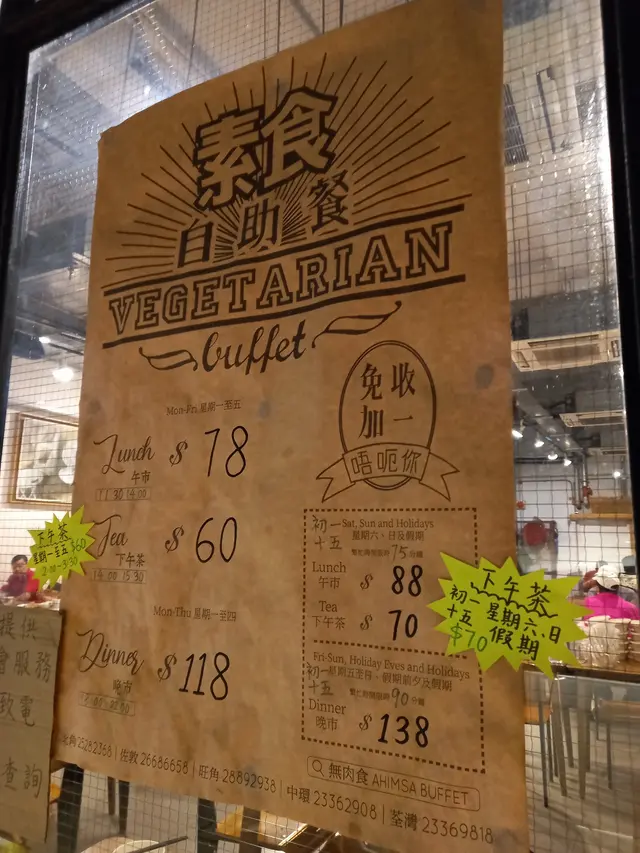 素食
自助餐
VEGETARIAN
buffet
免收
加一
唔呃你
Mon-Fri 星期一至五
Lunch $ 78
午市
11:30-14:00
Tea $ 60
下午茶
14:00-15:30
Mon-Thu 星期一至四
Dinner $ 118
晚市
下午茶
星期一至五 $60
2:00-3:30
初一 十五
Sat, Sun and Holidays
星期六、日及假期
繁忙時間限時 75 分鐘
Lunch $ 88
午市
Tea $ 70
下午茶
Fri-Sun, Holiday Eves and Holidays
初一 十五
星期五至日、假期前夕及假期
繁忙時間限時 90 分鐘
Dinner $ 138
晚市
下午茶
初一 星期六.日
十五 假期
$70
無肉食 AHIMSA BUFFET
北角 25282368 | 佐敦 26686658 | 旺角 28892938 | 中環 23362908 | 荃灣 23369818
提供
會服務
致電
查詢